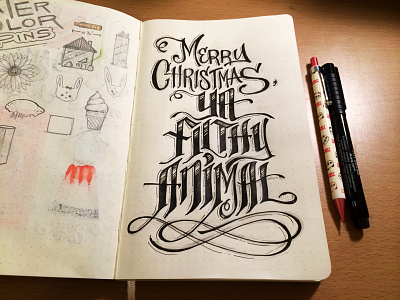 ATER
COLOR
PINS
MERRY
CHRISTMAS,
YA
FILTHY
ANIMAL